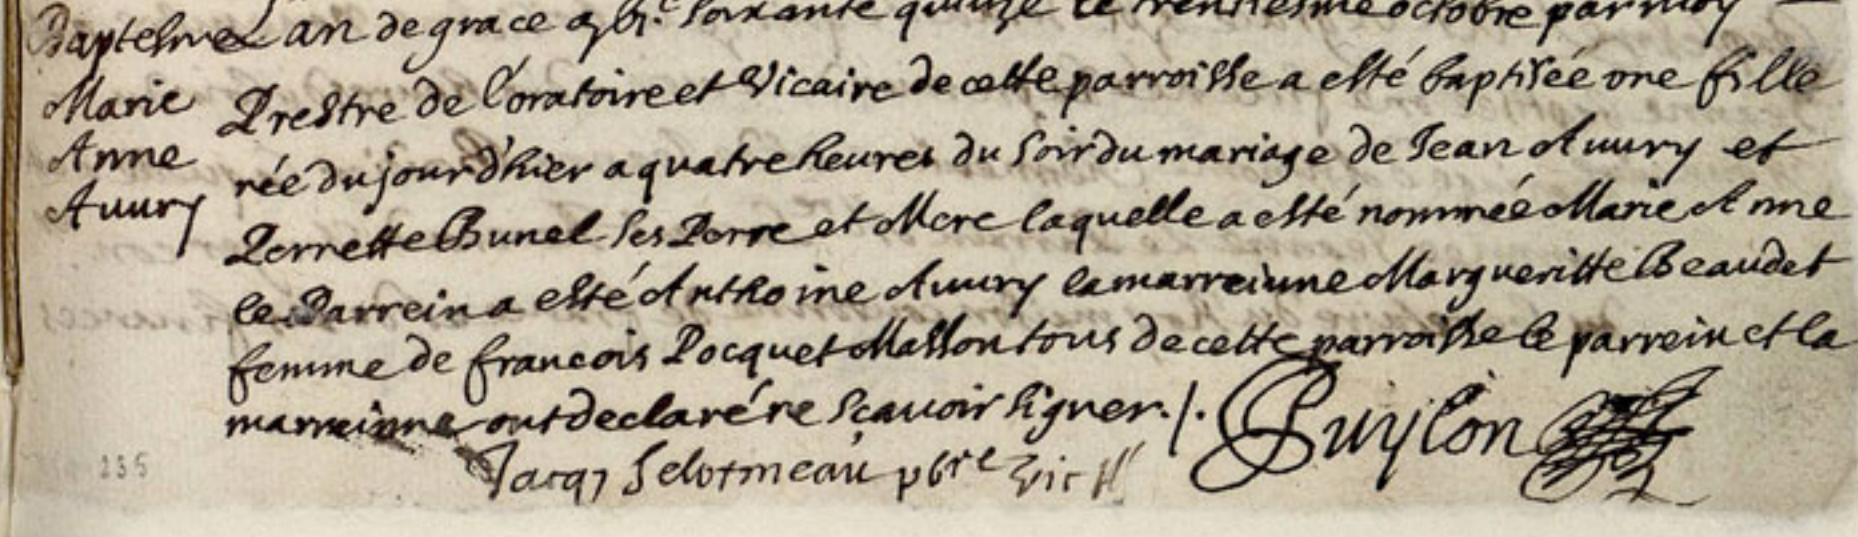 Baptesme L'an de grace mil bjc soixante quinze le trentiesme octobre par moy
Marie
Anne
Avury
Prestre de l'oratoire et Vicaire de cette parroisse a esté baptisée une fille
née du jour d'hier a quatre heures du soir du mariage de Jean Avury et
Perrette Bunel ses Perre et Mere laquelle a esté nommée Marie Anne
le Parrein a esté Anthoine Avury la marreinne Margueritte Beaudet
femme de francois Pocquet Masson tous de cette parroisse le parrein et la
marreinne ont declaré ne scavoir signer ./.
Puylon
Jacq) Selormeau pbre Vic
235